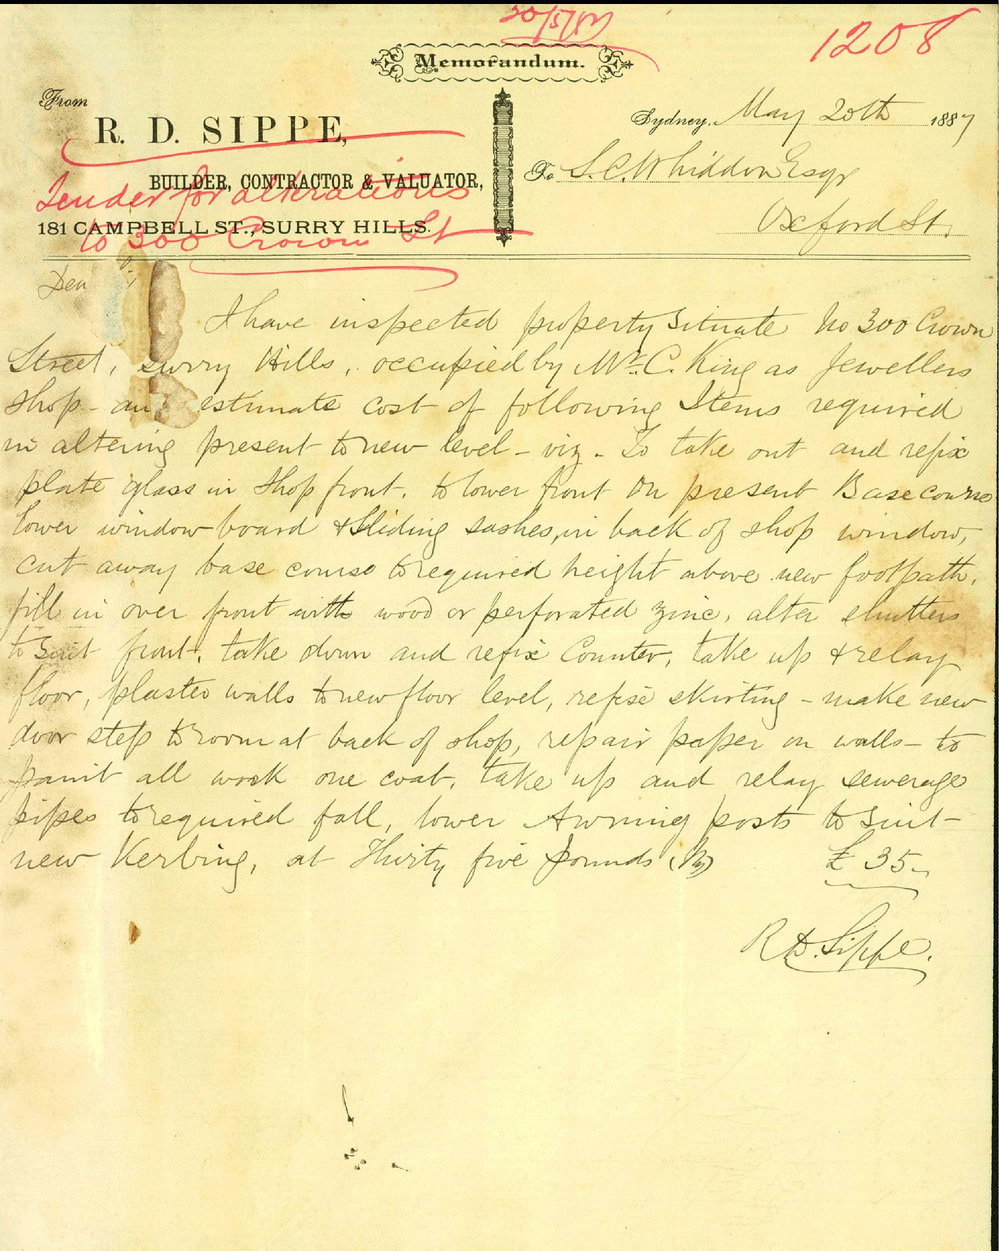 20/5/87
1208
Memorandum.
From
R. D. SIPPE,
Sydney, May 20th 1887
BUILDER, CONTRACTOR & VALUATOR,
To S. C. Whiddon Esqr
Tender for alterations
181 CAMPBELL ST., SURRY HILLS.
Oxford St,
to 300 Crown St
Dear
I have inspected property Situate No 300 Crown
Street, Surry Hills, occupied by Mr. C. King as Jewellers
Shop - an estimate cost of following Items required
in altering present to new level - viz - To take out and refix
plate glass in Shop front, to lower front on present Base course
lower window board & Sliding sashes, in back of shop window,
cut away base course to required height above new footpath,
fill in over front with wood or perforated zinc, alter shutters
to Suit front, take down and refix Counter, take up & relay
floor, plaster walls to new floor level, refixe skirting - make new
door step to room at back of shop, repair paper on walls - to
paint all work one coat, take up and relay sewerage
pipes to required fall, lower Awning posts to suit
new Kerbing, at Thirty five pounds £ 35
R D. Sippe.